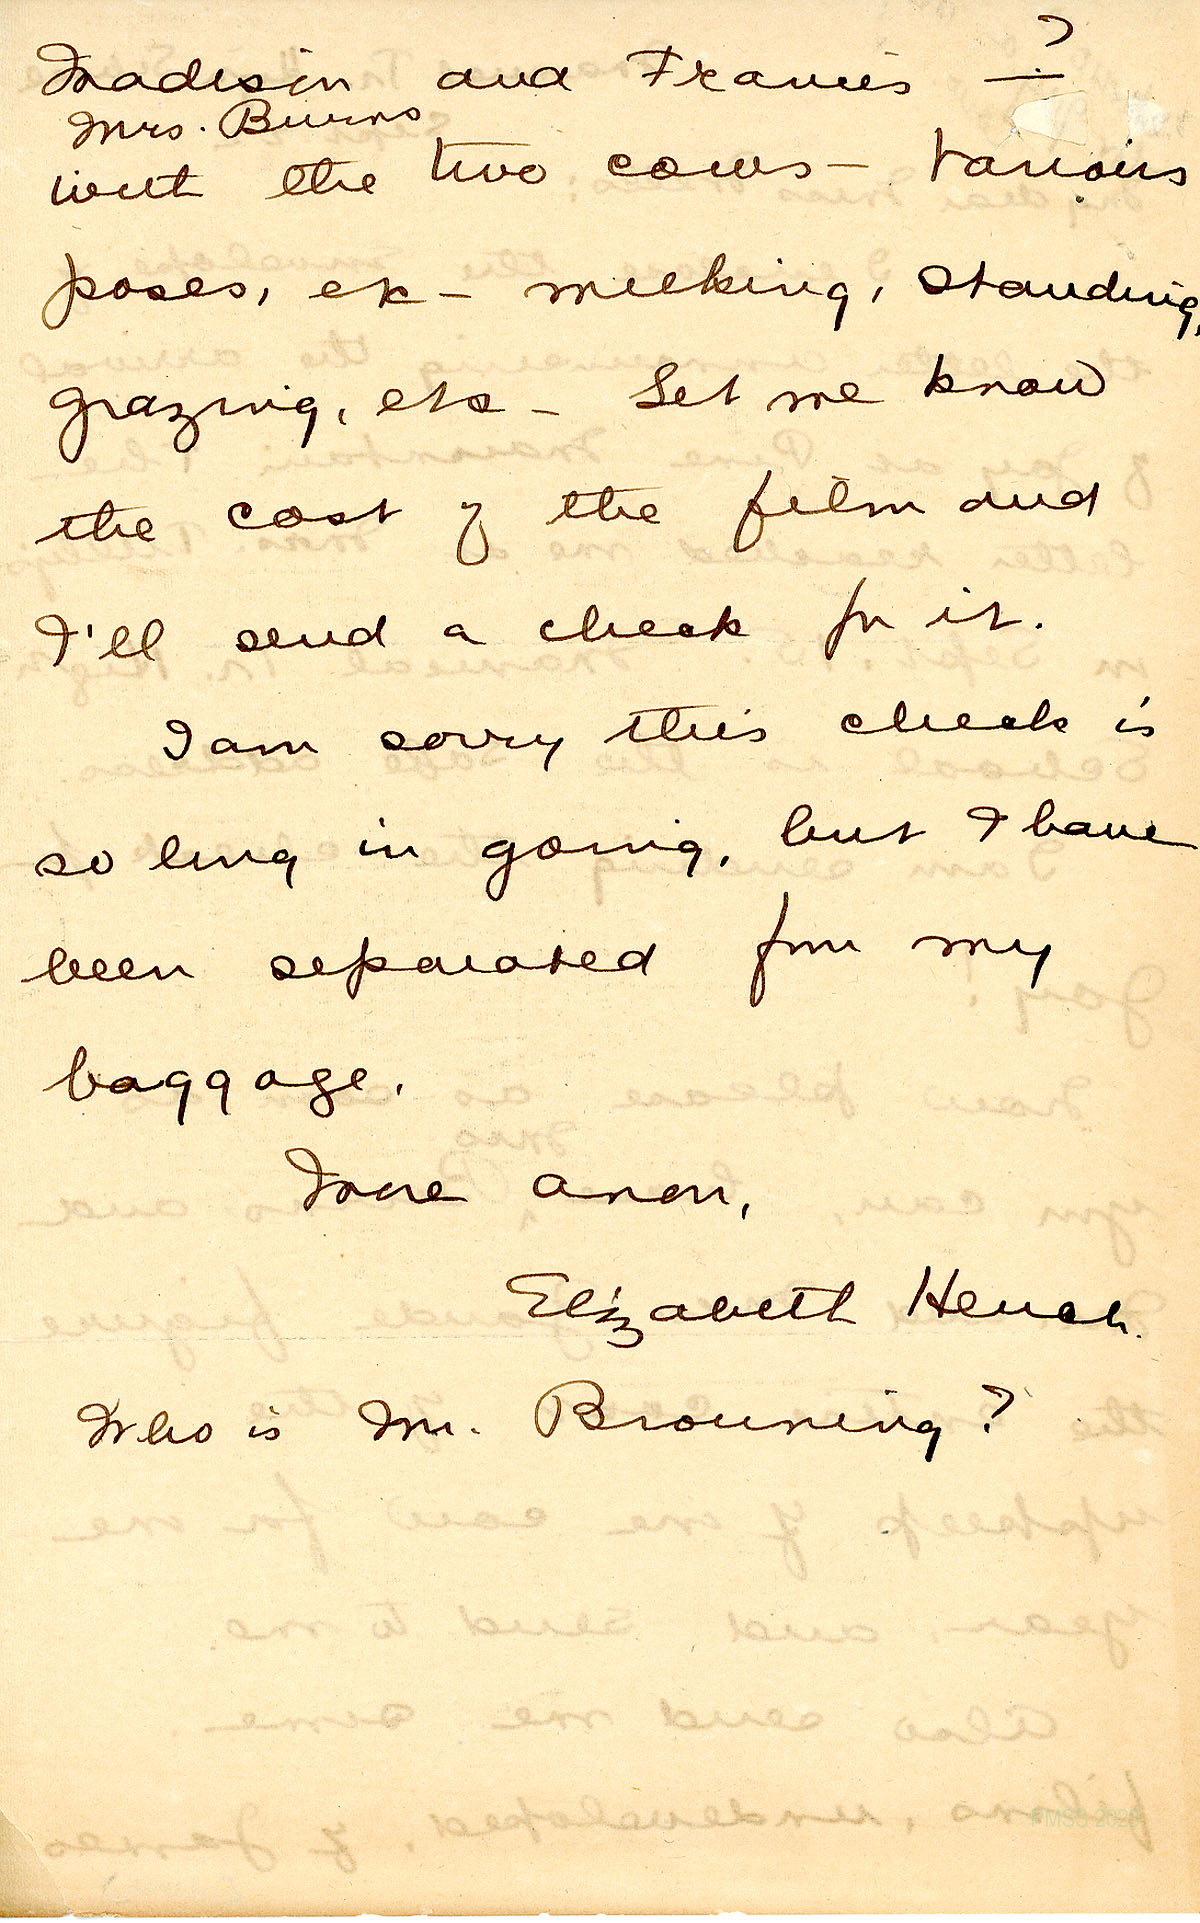 Madison and Francis — ?
Mrs. Burns
with the two cows — Various
poses, etc — milking, standing,
grazing, etc — Let me know
the cost of the film and
I'll send a check for it.
I am sorry this check is
so long in going, but I have
been separated from my
baggage.
More anon,
Elizabeth Hench.
Who is Mr. Browning?